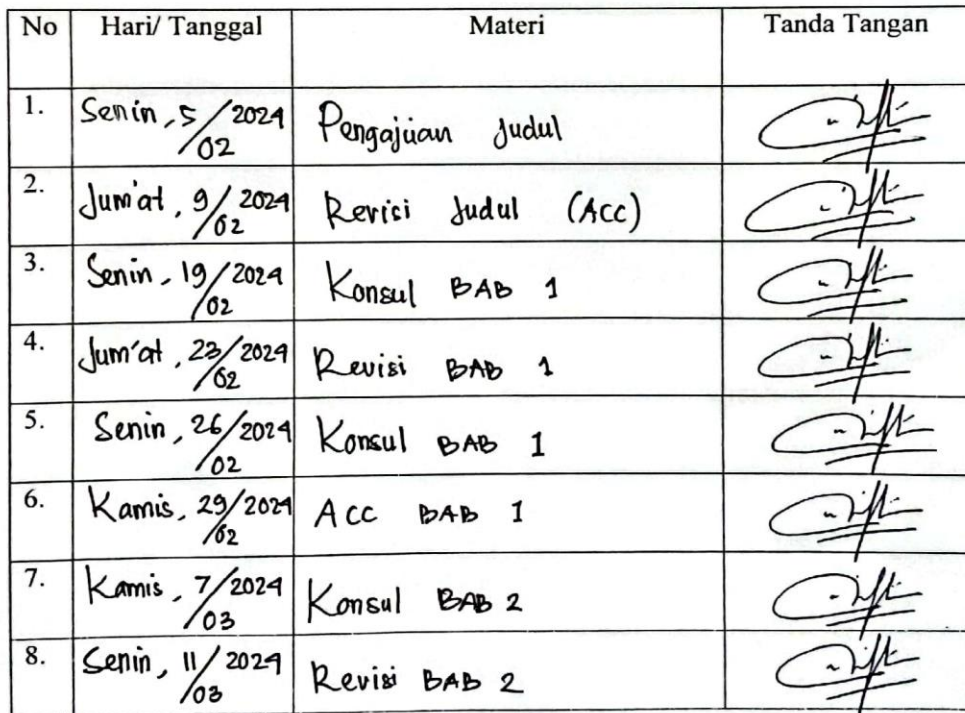 No Hari/ Tanggal Materi Tanda Tangan
1. Senin, 5/02 2024 Pengajuan Judul
2. Jum'at, 9/02 2024 Revisi Judul (Acc)
3. Senin, 19/02 2024 Konsul BAB 1
4. Jum'at, 23/02 2024 Revisi BAB 1
5. Senin, 26/02 2024 Konsul BAB 1
6. Kamis, 29/02 2024 Acc BAB 1
7. Kamis, 7/03 2024 Konsul BAB 2
8. Senin, 11/03 2024 Revisi BAB 2